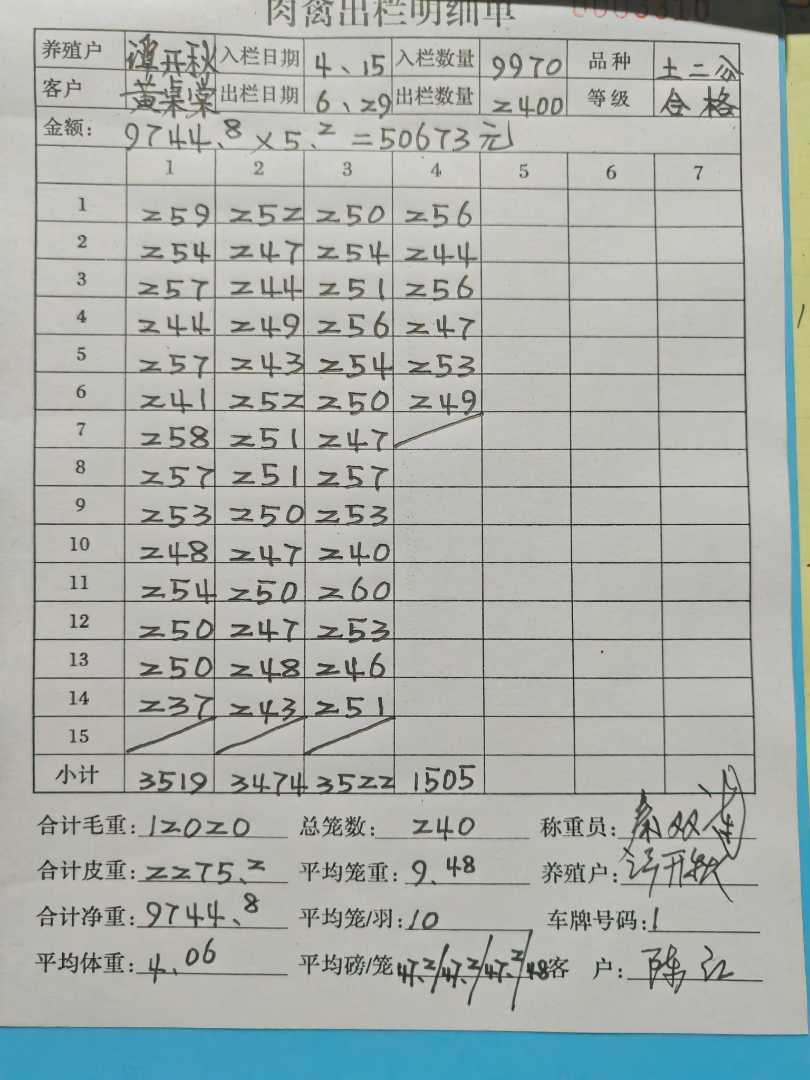 肉禽出栏明细单
养殖户 谭开秋 入栏日期 4、15 入栏数量 9970 品种 土二
客户 黄 出栏日期 6、29 出栏数量 2400 等级 合格
金额: 9744.8×5.2=50673元
1 2 3 4 5 6 7
1 259 252 250 256
2 254 247 254 244
3 257 244 251 256
4 244 249 256 247
5 257 243 254 253
6 241 252 250 249
7 258 251 247
8 257 251 257
9 253 250 253
10 248 247 240
11 254 250 260
12 250 247 253
13 250 248 246
14 237 243 251
15
小计 3519 3474 3522 1505
合计毛重: 12020 总笼数: 240 称重员:
合计皮重: 2275.2 平均笼重: 9.48 养殖户:
合计净重: 9744.8 平均笼/羽: 10 车牌号码: 1
平均体重: 4.06 平均磅/笼 47.2/47.2/47.2/48 客 户: 陈江